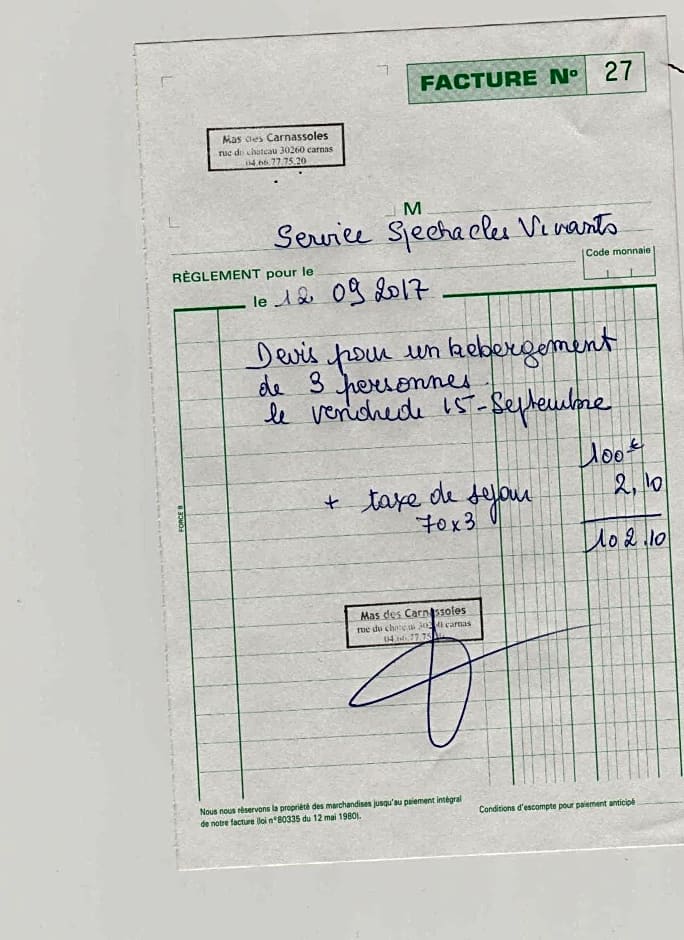 FACTURE Nº 27
Mas des Carnassoles
rue du chateau 30260 carnas
04.66.77.75.20
M
Service Spectacles Vivants
Code monnaie
RÈGLEMENT pour le
le 12 09 2017
Devis pour un hebergement
de 3 personnes
le vendrede 15-Septembre
100€
+ taxe de sejour 2,10
70x3
102.10
Mas des Carnassoles
rue du chateau 30260 carnas
04.66.77.75
FORCE B
Nous nous réservons la propriété des marchandises jusqu'au paiement intégral
de notre facture (loi n°80335 du 12 mai 1980).
Conditions d'escompte pour paiement anticipé